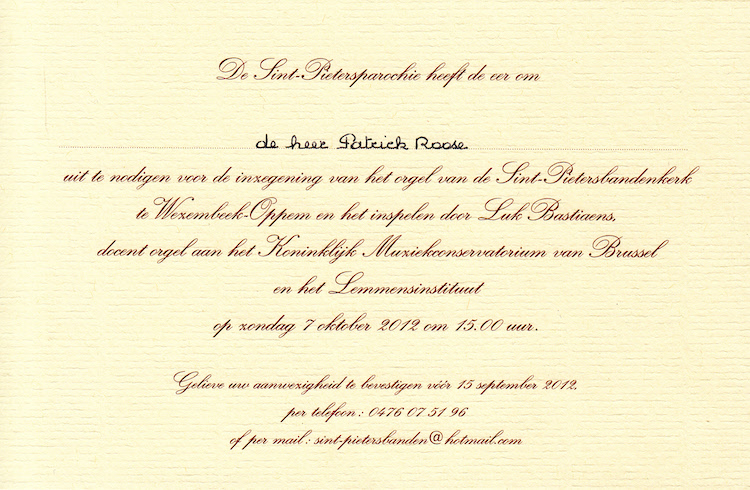 De Sint-Pietersparochie heeft de eer om
de heer Patrick Roose
uit te nodigen voor de inzegening van het orgel van de Sint-Pietersbandenkerk
te Wezembeek-Oppem en het inspelen door Luk Bastiaens,
docent orgel aan het Koninklijk Muziekconservatorium van Brussel
en het Lemmensinstituut
op zondag 7 oktober 2012 om 15.00 uur.
Gelieve uw aanwezigheid te bevestigen vóór 15 september 2012,
per telefoon : 0476 07 51 96
of per mail : sint-pietersbanden@hotmail.com